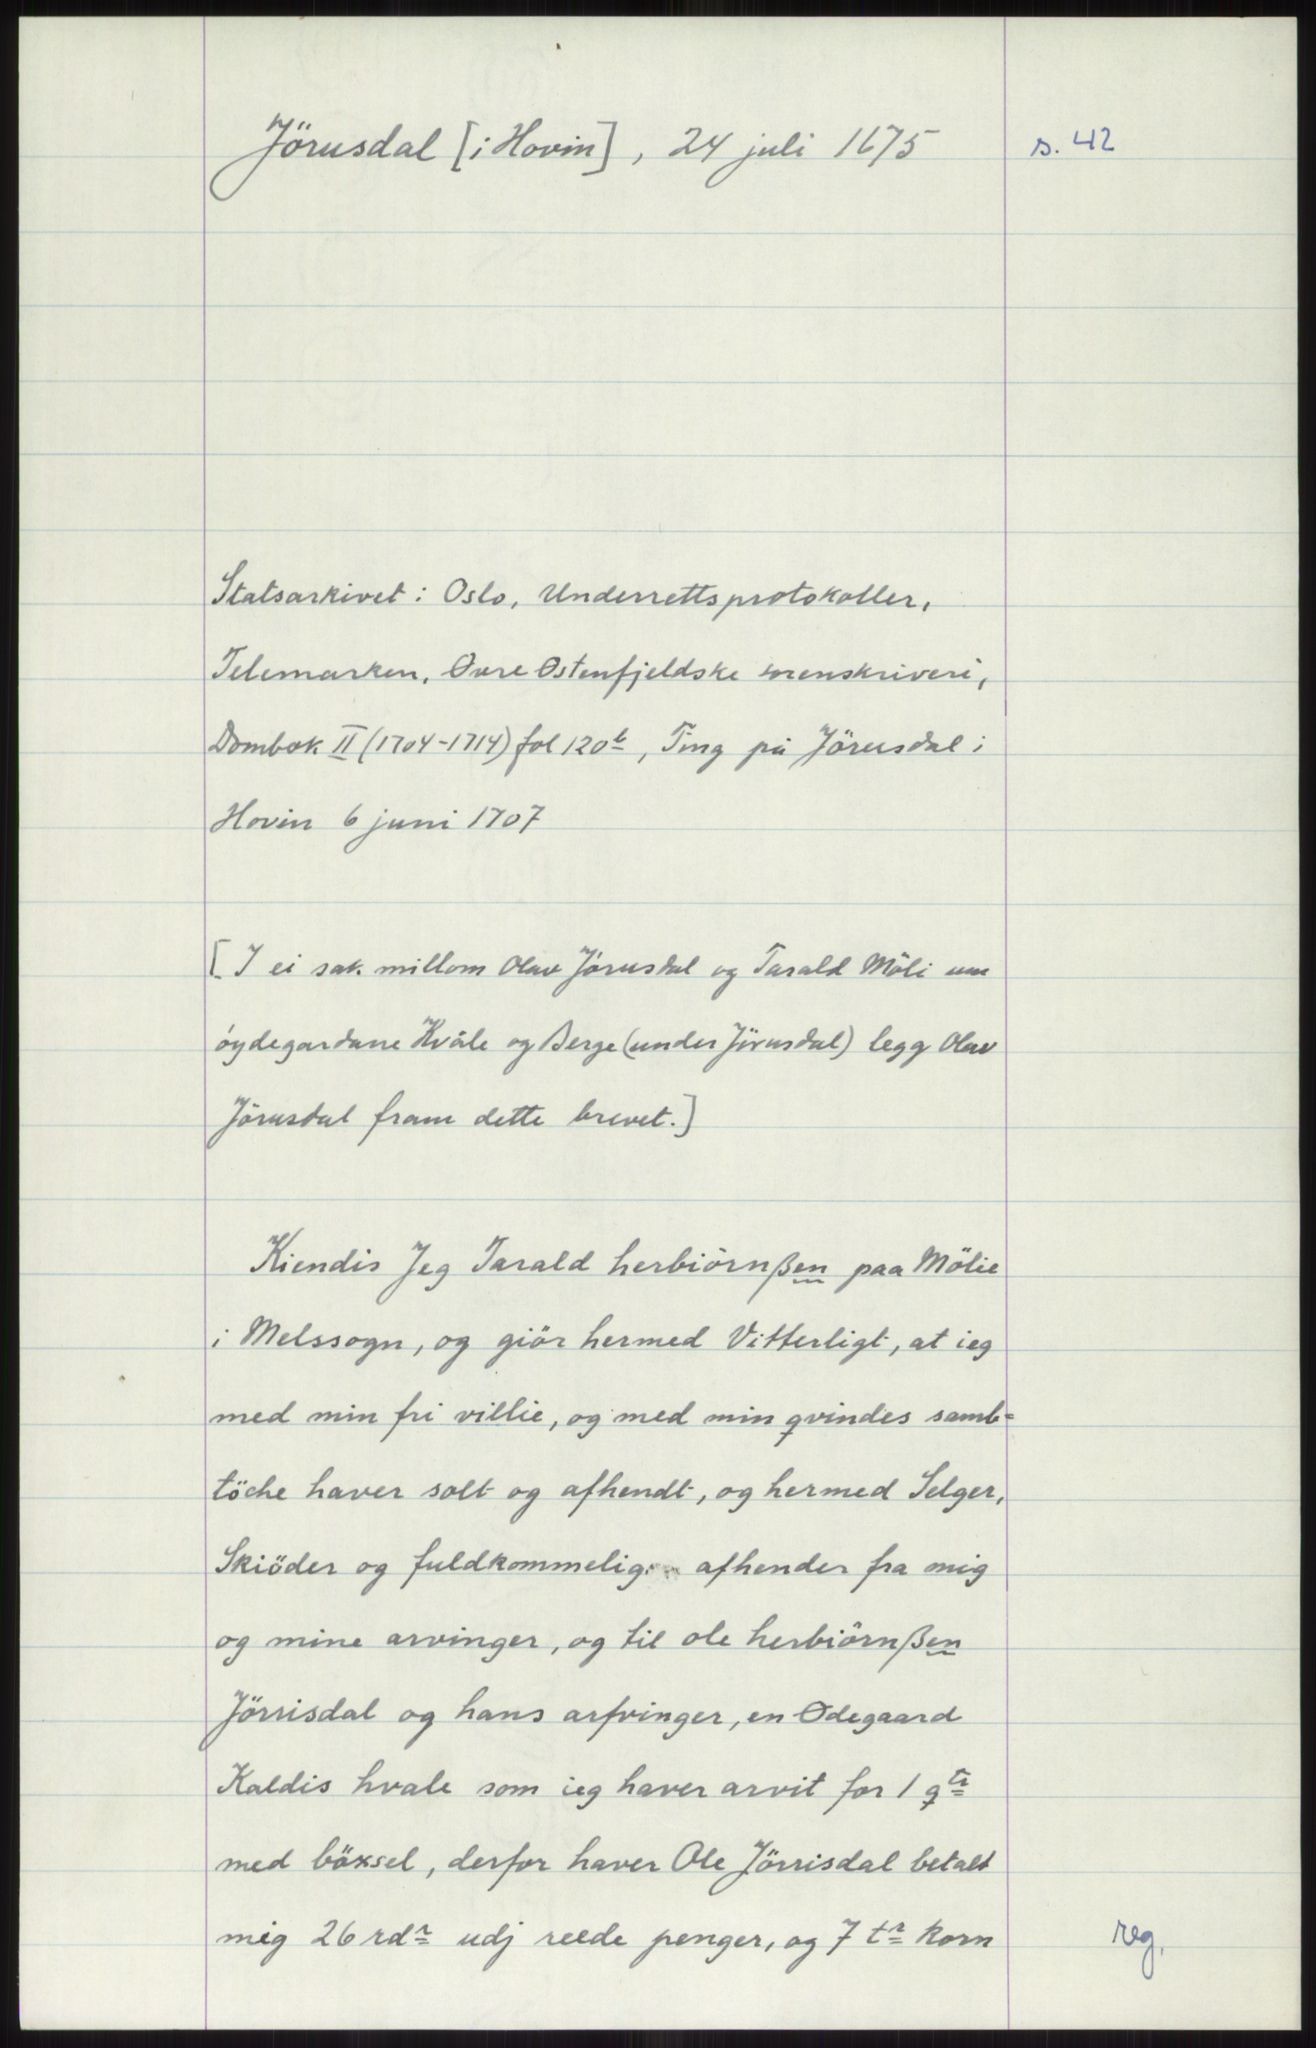 Jörusdal [i Hovin], 24 juli 1675
s. 42
Statsarkivet i Oslo, Underrettsprotokoller,
Telemarken, Øvre Østenfjeldske sorenskriveri,
Dombok II (1704-1714) fol 120b, Ting på Jörusdal i
Hovin 6 juni 1707
[I ei sak millom Olav Jörusdal og Tarald Möli um
öydegardane Kvåle og Berge (under Jörusdal) legg Olav
Jörusdal fram dette brevet.]
Kiendis Jeg Tarald herbiörnßen paa Mölie
i Melssogn, og giör hermed Vitterligt, at ieg
med min fri villie, og med min qvindes samb=
töche haver solt og afhendt, og hermed Selger,
Skiöder og fuldkommelig afhender fra mig
og mine arvinger, og til ole herbiörnßen
Jörrisdal og hans arfvinger, en Ødegaard
Kaldis hvale som ieg haver arvit for 1 qtr
med böxsel, derfor haver Ole Jörrisdal betalt
mig 26 rdr udj reede penger, og 7 tr korn
reg.